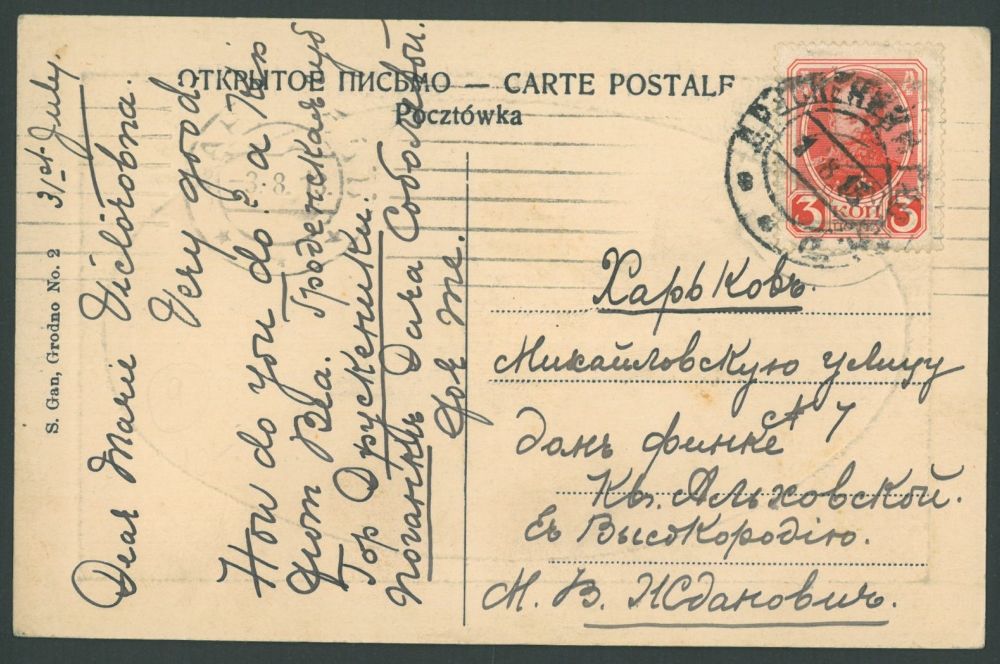 ОТКРЫТОЕ ПИСЬМО — CARTE POSTALE
Pocztówka
S. Gan, Grodno No. 2
31st July.
Dear Marie Victorobna.
Very good
How do you do? a Kiss
from Вла. Гродненская губ
Гор Друскеники.
Дача Соболевой.
for me.
3 КОП 3
Харьковъ.
Михайловскую улицу
домъ финке № 7
Кв. Альховской.
Ея Высокородію.
М. В. Ждановичъ.